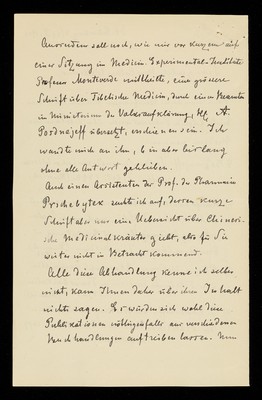 Ausserdem soll noch, wie mir vor kurzem auf
einer Sitzung im Medicin. Experimental-Institute
Professor Monteverde mittheilte, eine grössere
Schrift über Tibetische Medicin, durch einen Beamten
im Ministerium der Volksaufklärung, H. A.
Posdnejeff übersetzt, erschienen sein. Ich
wandte mich an ihn, bin aber bis lang
ohne alle Antwort geblieben.
Auch einen Assistenten des Prof. der Pharmacie
Porschebytex suchte ich auf, dessen kurze
Schrift aber nur eine Uebersicht über Chinesi-
sche Medicinalkräuter giebt, also für Sie
weiter nicht in Betracht kommend.
Alle diese Abhandlung kenne ich selber
nicht, kann Ihnen daher über ihren Inhalt
nichts sagen. Es würden sich wohl diese
Publikationen nöthigenfalls aus verschiedenen
Buchhandlungen auftreiben lassen. Nun